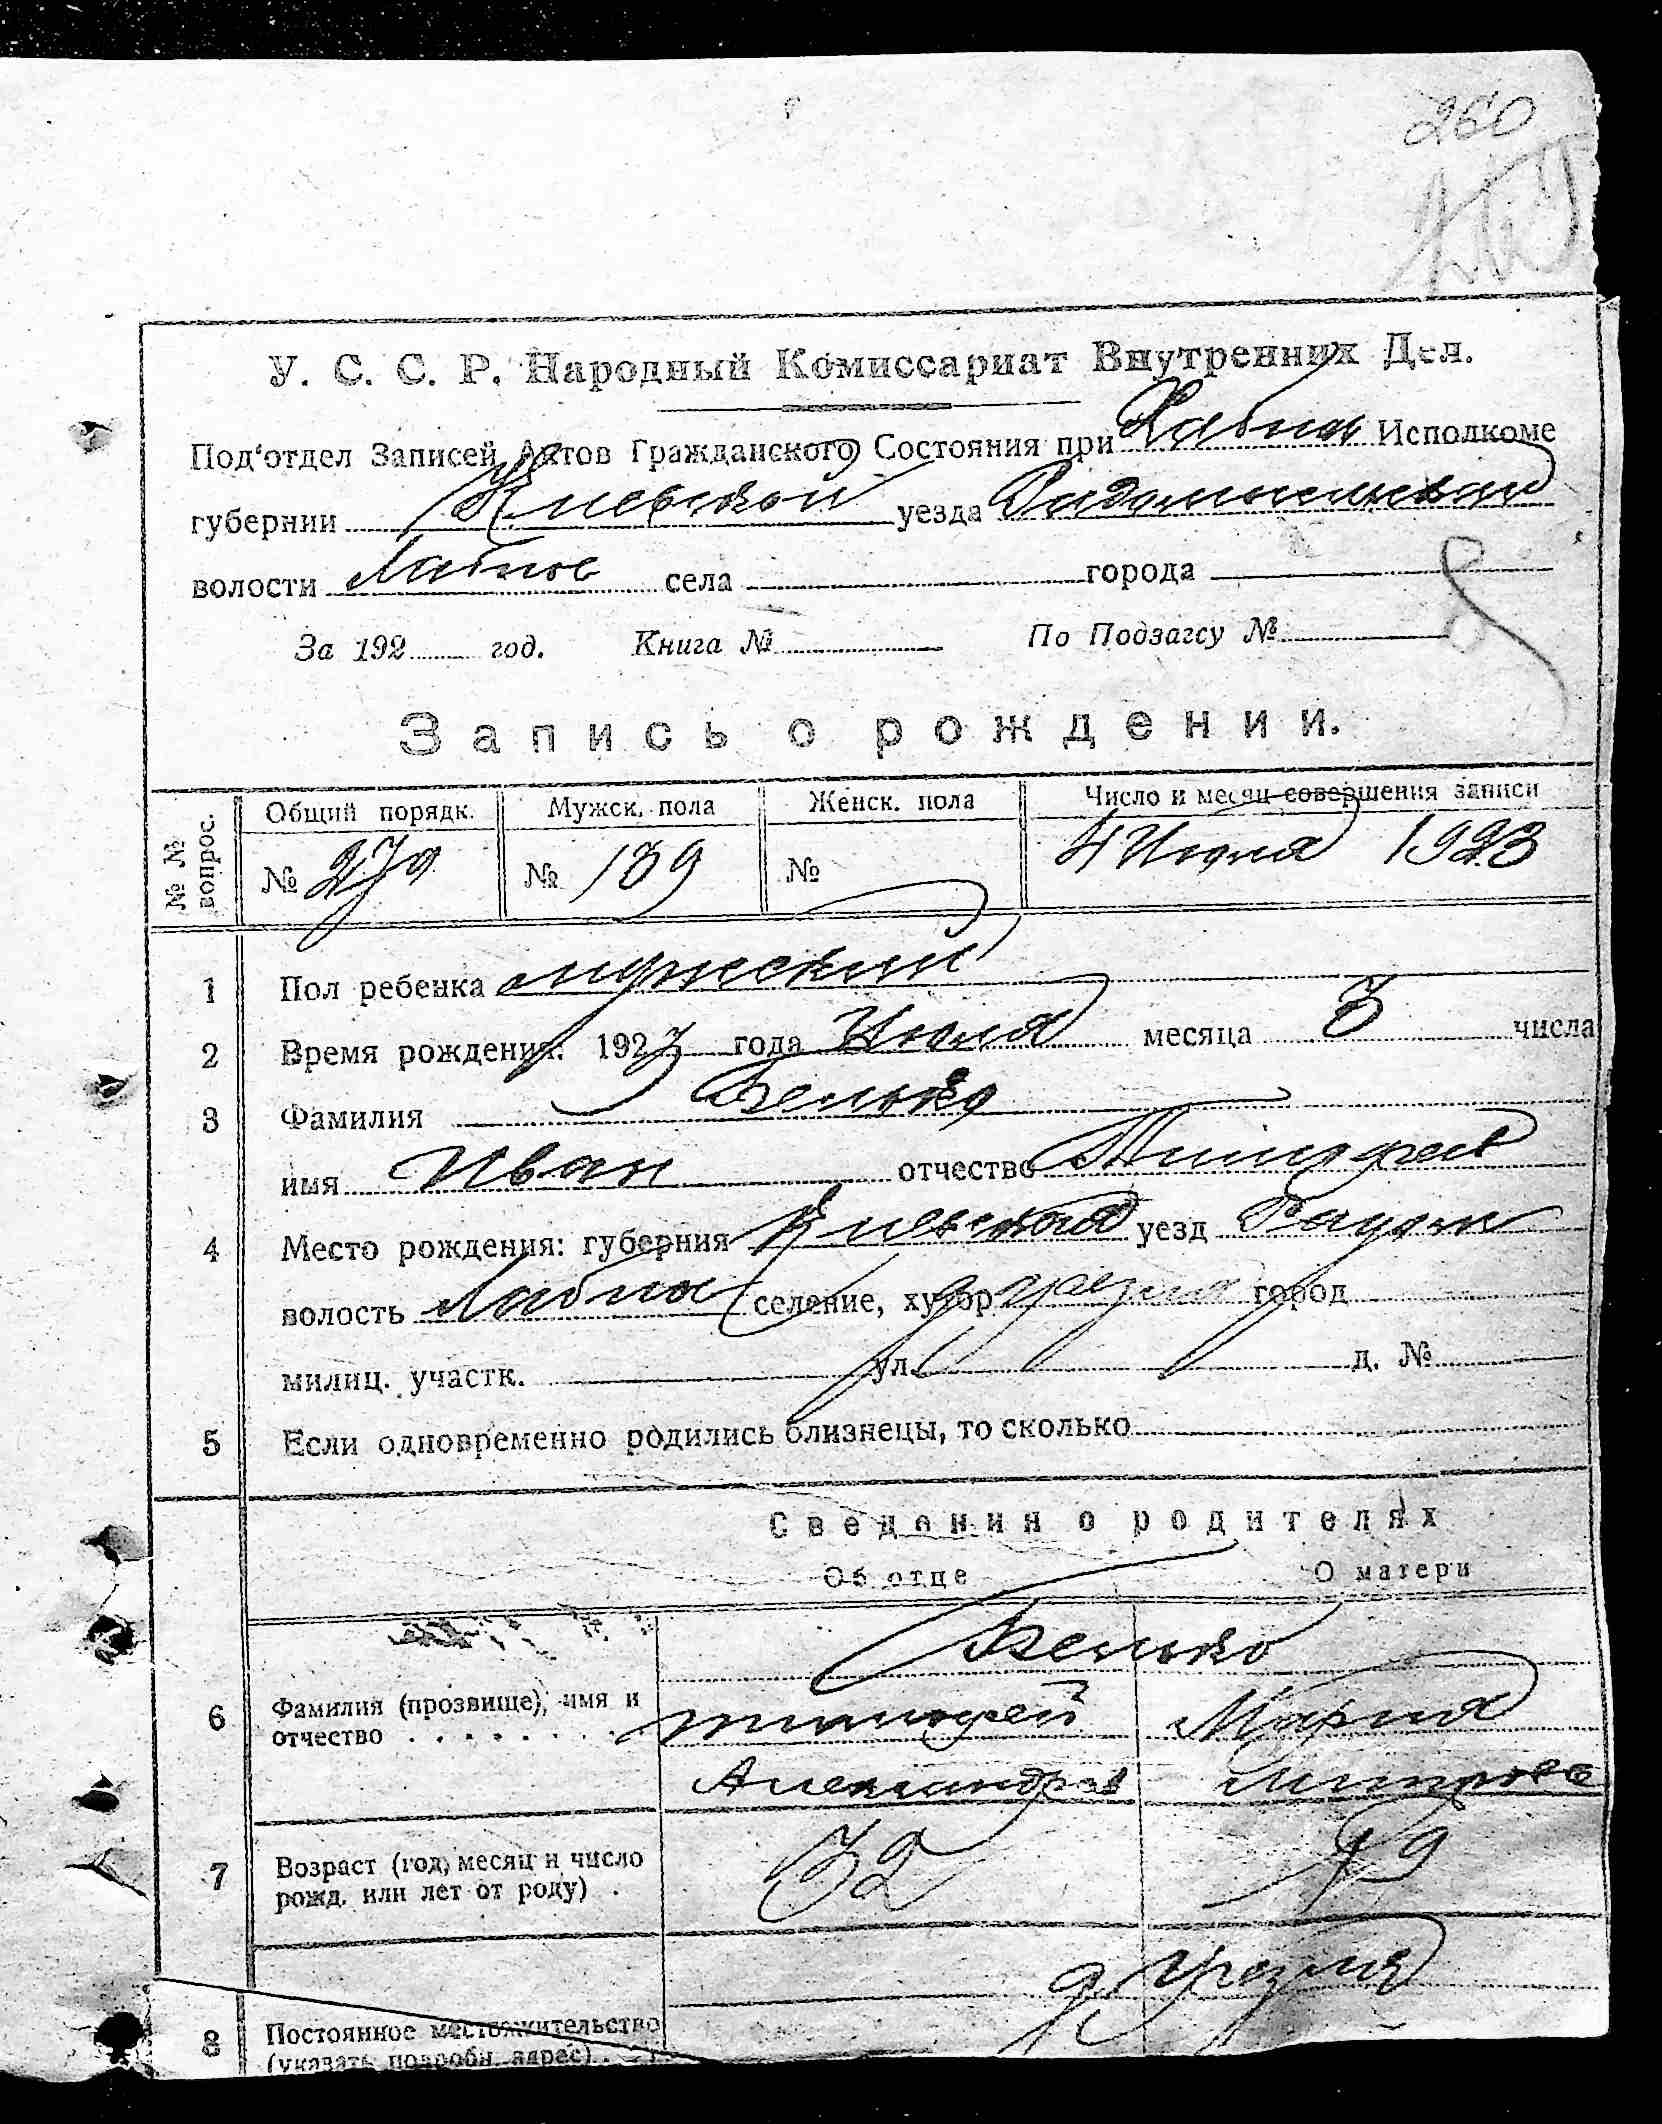 260
У. С. С. Р. Народный Комиссариат Внутренних Дел.
Под'отдел Записей Актов Гражданского Состояния при Хабня Исполкоме
губернии Киевской уезда Радомысльский
волости Хабнов села города
За 192 год. Книга № По Подзагсу №
Запись о рождении.
№ № вопрос. Общий порядк. Мужск. пола Женск. пола Число и месяц совершения записи
№ 270 № 139 № 4 Июля 1923
1 Пол ребенка мужеский
2 Время рождения: 1923 года Июля месяца 3 числа
3 Фамилия Белько
имя Иван отчество Тимофеев
4 Место рождения: губерния Киевская уезд Радом
волость Хабная селение, хутор город
милиц. участк. ул. д. №
5 Если одновременно родились близнецы, то сколько
Сведения о родителях
Об отце О матери
Белько
6 Фамилия (прозвище), имя и отчество . . . . . . . Тимофей Мария
Александров Митров
7 Возраст (год, месяц и число рожд. или лет от роду) . 32 29
8 Постоянное местожительство
(указать подробн. адрес) . .